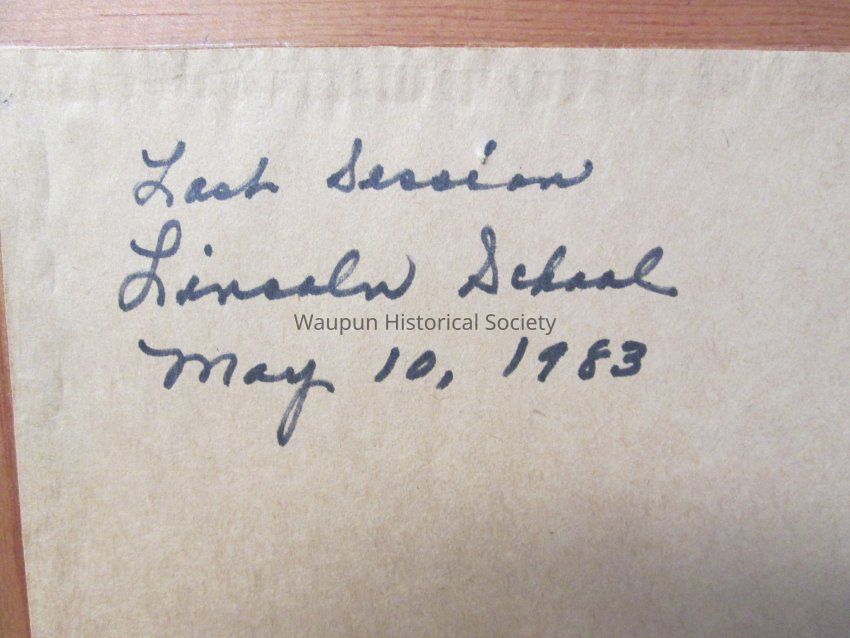 Last Session
Lincoln School
Waupun Historical Society
May 10, 1983